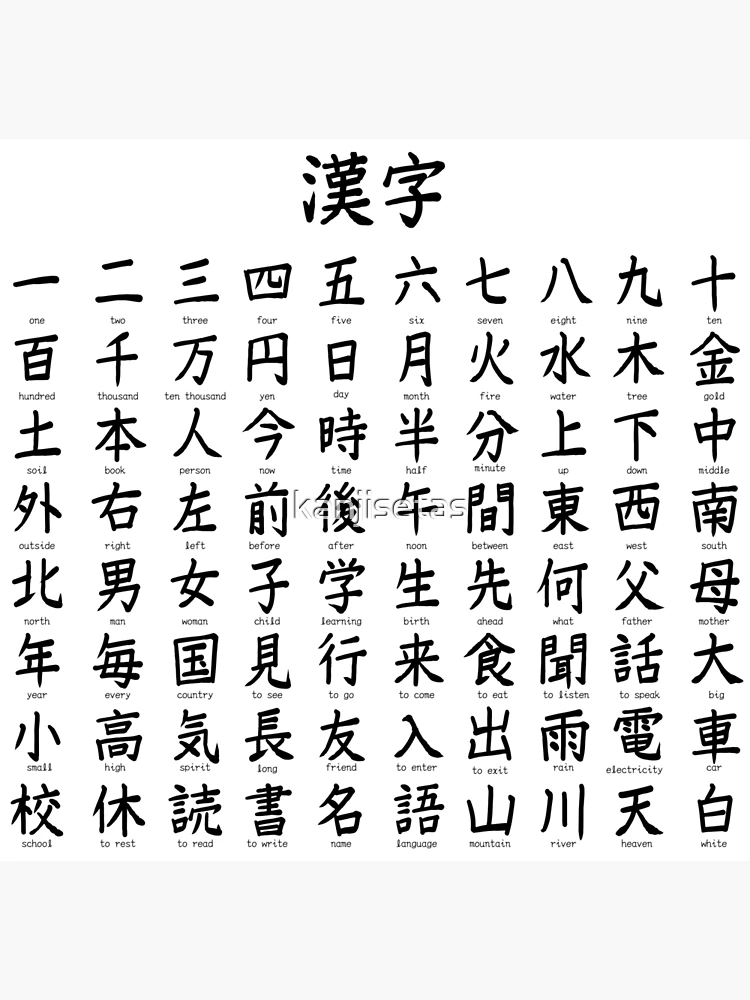 漢字
一 二 三 四 五 六 七 八 九 十
one two three four five six seven eight nine ten
百 千 万 円 日 月 火 水 木 金
hundred thousand ten thousand yen day month fire water tree gold
土 本 人 今 時 半 分 上 下 中
soil book person now time half minute up down middle
外 右 左 前 後 午 間 東 西 南
kanjisetas
outside right left before after noon between east west south
北 男 女 子 学 生 先 何 父 母
north man woman child learning birth ahead what father mother
年 毎 国 見 行 来 食 聞 話 大
year every country to see to go to come to eat to listen to speak big
小 高 気 長 友 入 出 雨 電 車
small high spirit long friend to enter to exit rain electricity car
校 休 読 書 名 語 山 川 天 白
school to rest to read to write name language mountain river heaven white